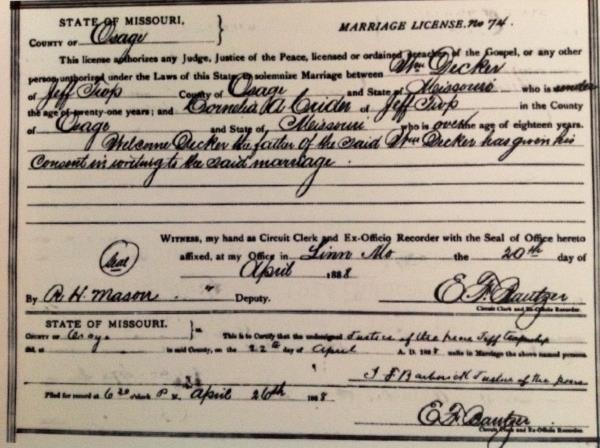 STATE OF MISSOURI,
COUNTY OF Osage
MARRIAGE LICENSE. No 74.
This license authorizes any Judge, Justice of the Peace, licensed or ordained preacher of the Gospel, or any other
person authorized under the Laws of this State to solemnize Marriage between Wm Decker
of Jeff Twp County of Osage and State of Missouri who is under
the age of twenty-one years; and Cornelia A Crider of Jeff Twp in the County
of Osage and State of Missouri who is over the age of eighteen years.
Welcome Decker the father of the said Wm Decker has given his
Consent in writing to the said marriage.
WITNESS, my hand as Circuit Clerk and Ex-Officio Recorder with the Seal of Office hereto
Seal
affixed, at my Office in Linn Mo the 20th day of
April 1888
By R. H. Mason Deputy.
Circuit Clerk and Ex-Officio Recorder.
STATE OF MISSOURI.
COUNTY OF Osage This is to Certify that the undersigned Justice of the peace Jeff township
did, at in said County, on the 22d day of April A. D. 1888 unite in Marriage the above named persons.
Justice of the peace
Filed for record at 6 20 o'clock P M. April 26th 1888
Circuit Clerk and Ex-Officio Recorder.